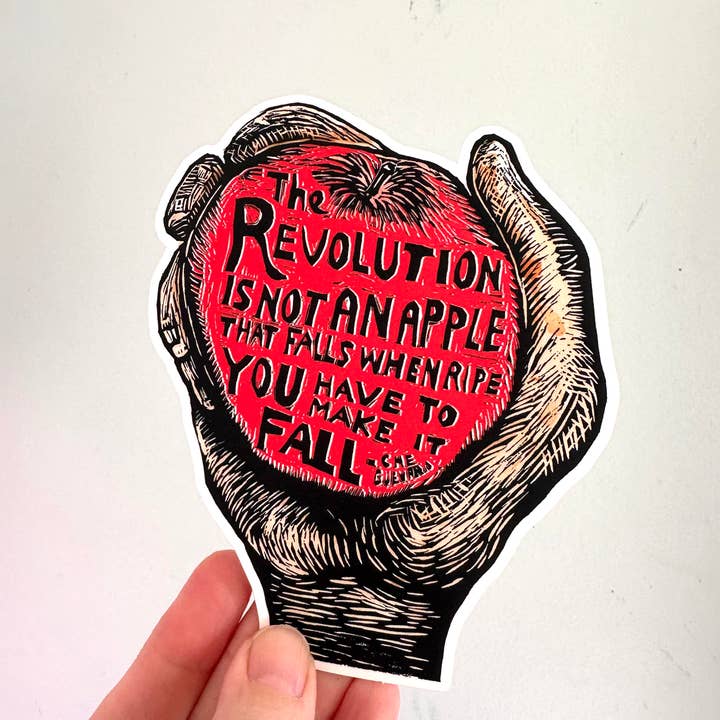 The
REVOLUTION
IS NOT AN APPLE
THAT FALLS WHEN RIPE
YOU HAVE TO
MAKE IT
FALL
- CHE
GUEVARA